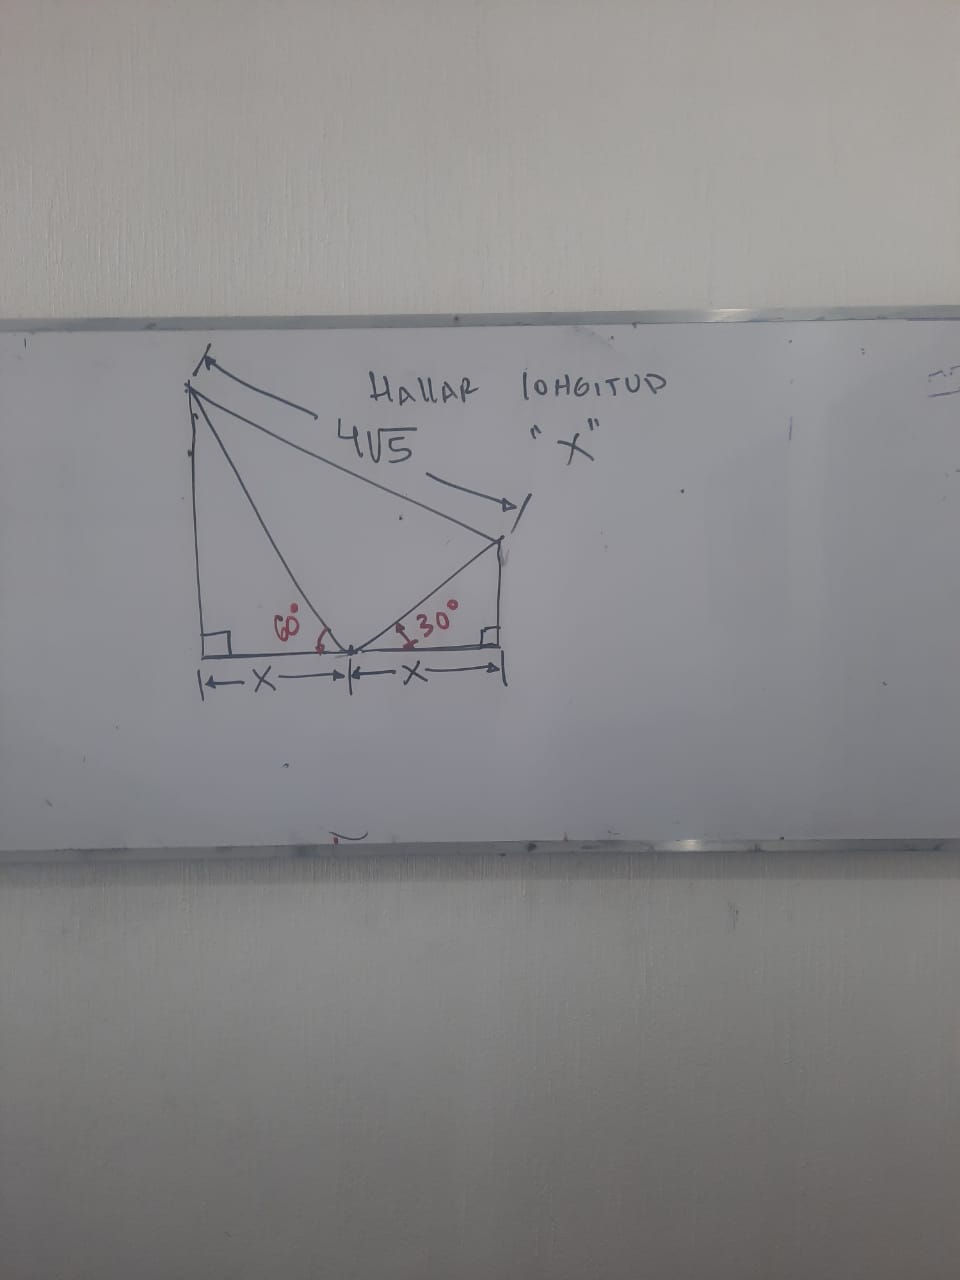 HALLAR LONGITUD
4√5 "X"
60° 30°
X X